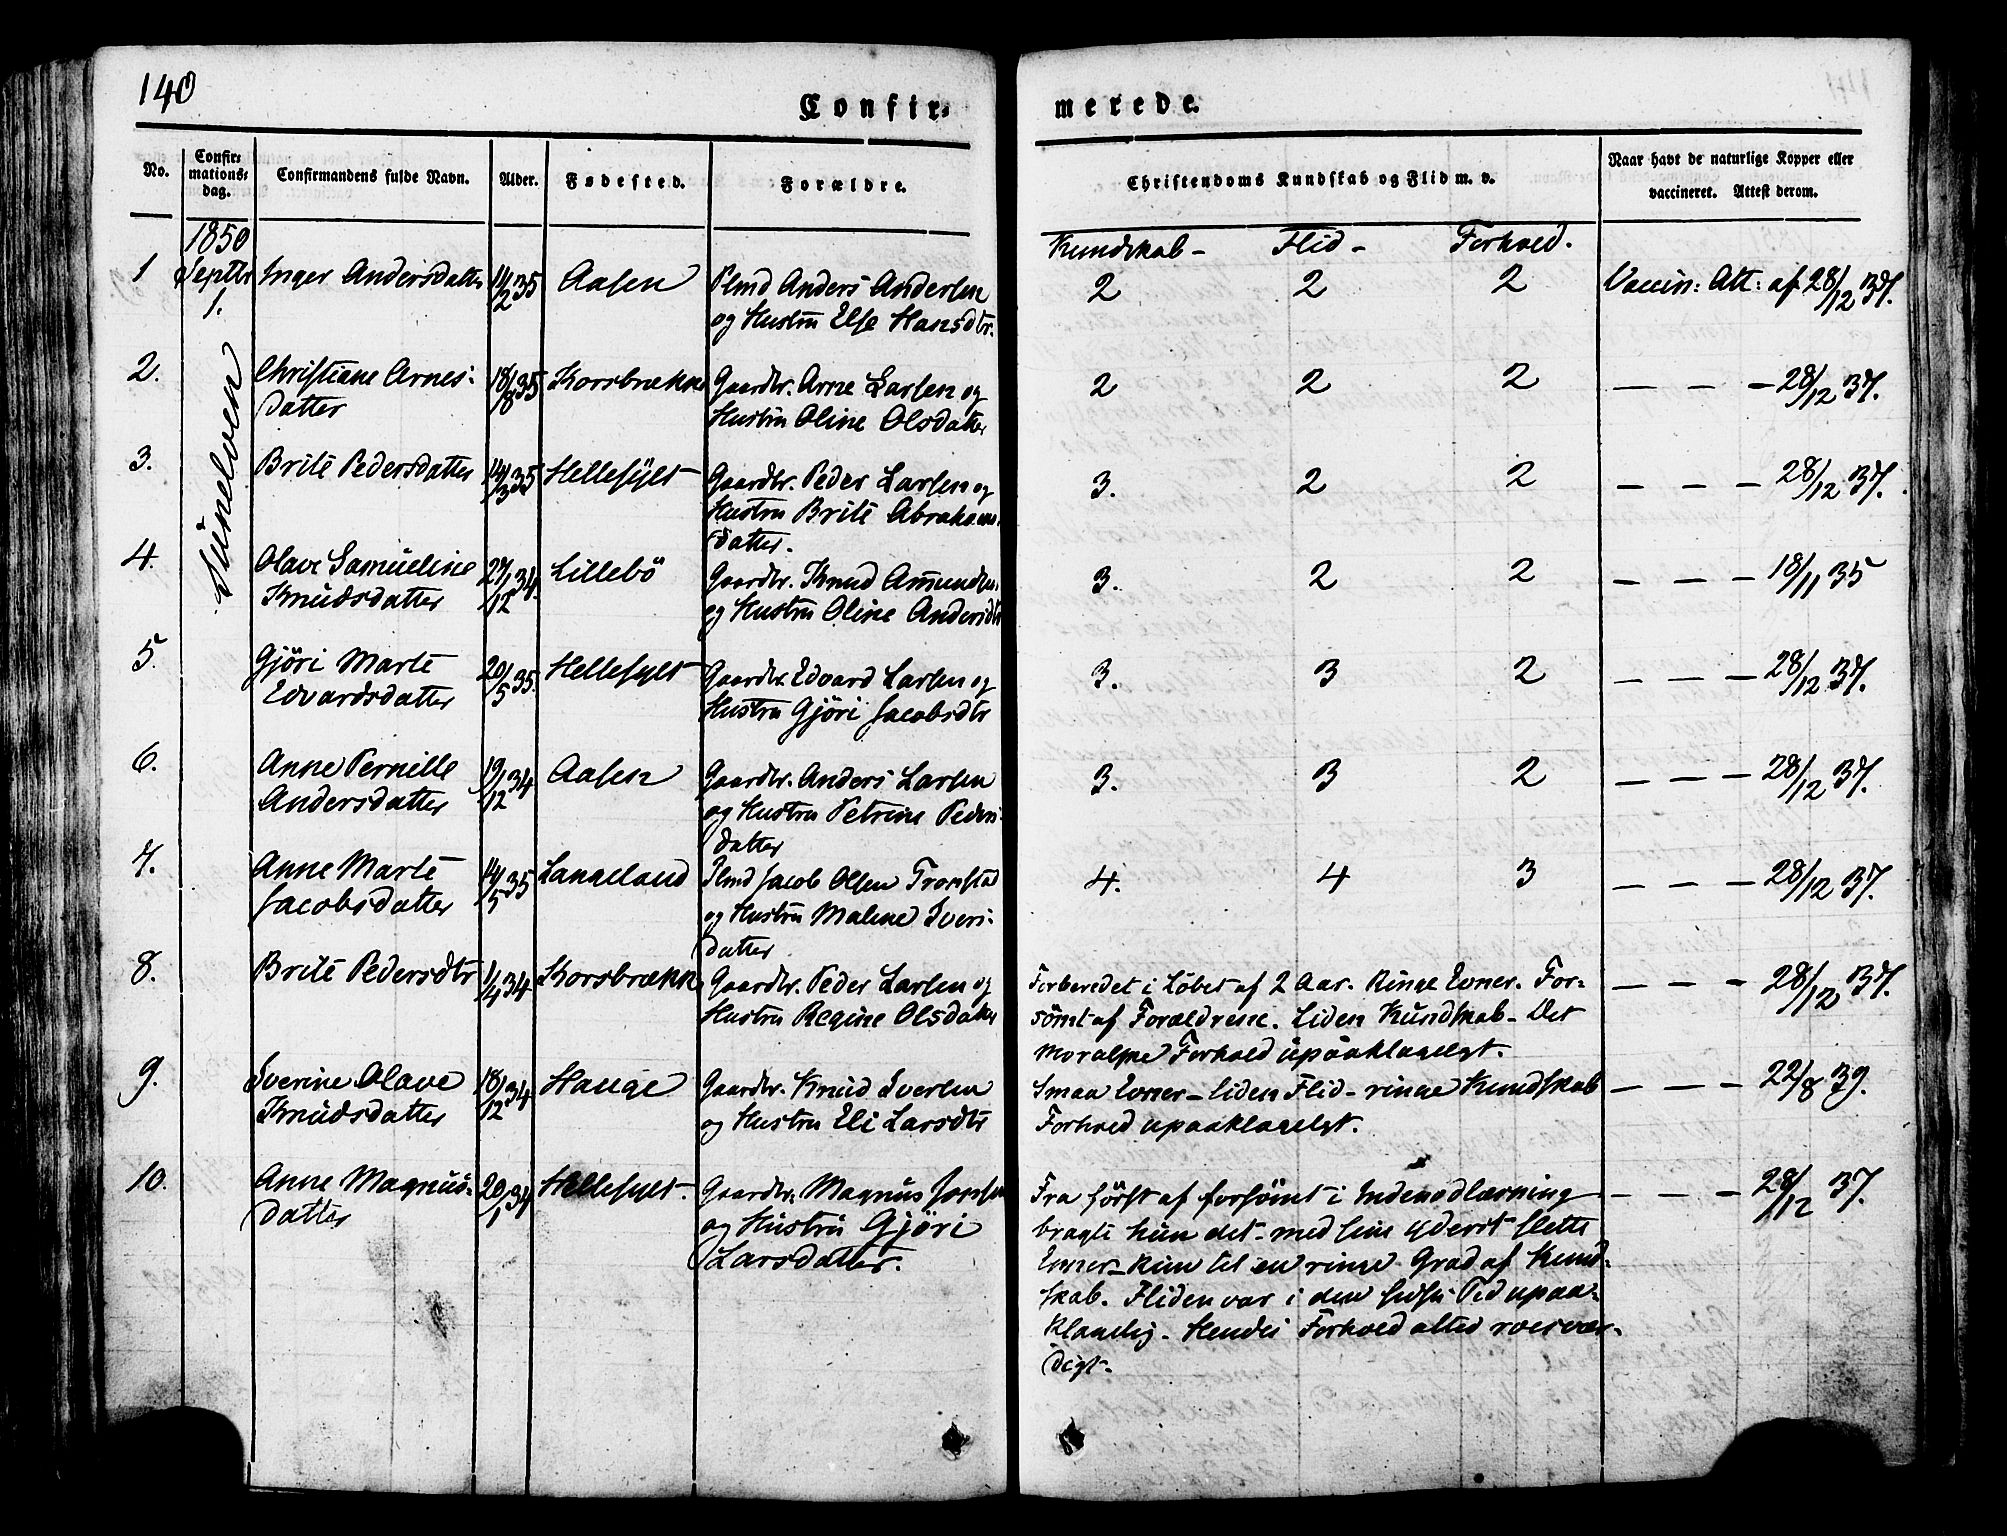 140
Confir-
merede.
No.
Confir-
mations-
dag.
Confirmandens fulde Navn.
Alder.
Fødested.
Forældre.
Christendoms Kundskab og Flid m. v.
Naar havt de naturlige Kopper eller
vaccineret. Attest derom.
1850
Kundskab - Flid - Forhold.
Sunelven
1 Septbr Inger Andersdatter 11/2 35 Aasen Plmd Anders Andersen 2 2 2 Vaccin: Att: af 28/12 37.
1. og Hustru Else Hansdtr.
2. Christiane Arnes- 18/8 35 Korsbrække Gaardbr. Arne Larsen og 2 2 2 — — — 28/12 37.
datter Hustru Oline Olsdatter
3. Brite Pedersdatter 14/3 35 Hellesylt Gaardbr. Peder Larsen og 3. 2 2 — — — 28/12 37.
Hustru Brite Abrahams-
datter.
4. Olave Samueline 27/12 34. Lillebö Gaardbr. Knud Amundsen 3. 2 2 — — — 18/11 35
Knudsdatter og Hustru Oline Andersdtr
5. Gjöri Marte 20/5 35. Hellesylt Gaardbr. Edvard Larsen og 3. 3 2 — — — 28/12 37.
Edvardsdatter Hustru Gjöri Jacobsdtr
6. Anne Pernille 19/12 34 Aasen Gaardbr. Anders Larsen 3. 3 2 — — — 28/12 37.
Andersdatter og Hustru Petrine Peders-
datter
7. Anne Marte 14/5 35 Langeland Plmd Jacob Olsen Tronstad 4. 4 3 — — — 28/12 37.
Jacobsdatter og Hustru Malene Ivers-
datter
8. Brite Pedersdtr 1/4 34 Korsbrække Gaardbr. Peder Larsen og Forberedet i Löbet af 2 Aar. Ringe Evner. For- — — — 28/12 37.
Hustru Regine Olsdatter sömt af Forældrene. Liden Kundskab - Det
moralske Forhold upaaklageligt.
9. Iverine Olave 18/12 34 Hauge Gaardbr. Knud Iversen Smaa Evner - liden Flid - ringe Kundskab — — — 22/8 39.
Knudsdatter og Hustru Eli Larsdtr Forhold upaaklageligt.
10. Anne Magnus- 20/1 34 Hellesylt. Gaardbr. Magnus Fra först af forsömt i Indenadlæsning — — — 28/12 37.
datter og Hustru Gjöri bragte hun det - med sine yderst slette
Larsdatter. Evner - kun til en ringe Grad af Kund-
skab. Fliden var i den sidste Tid upaa-
klagelig - Hendes Forhold altid roesvær-
digt.